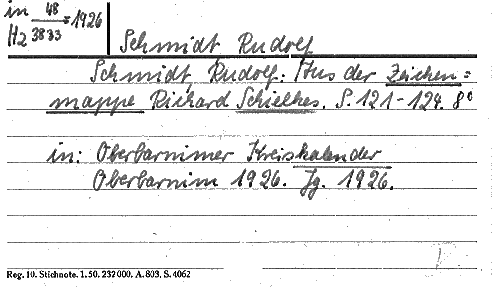 in 48 = 1926
Hz 3833
Schmidt Rudolf
Schmidt, Rudolf: Aus der Zeichen=
mappe Richard Schielkes. S. 121-124. 8°
in: Oberbarnimer Kreiskalender
Oberbarnim 1926. Jg. 1926.
Reg. 10. Stichnote. 1. 50. 232000. A. 803. S. 4062